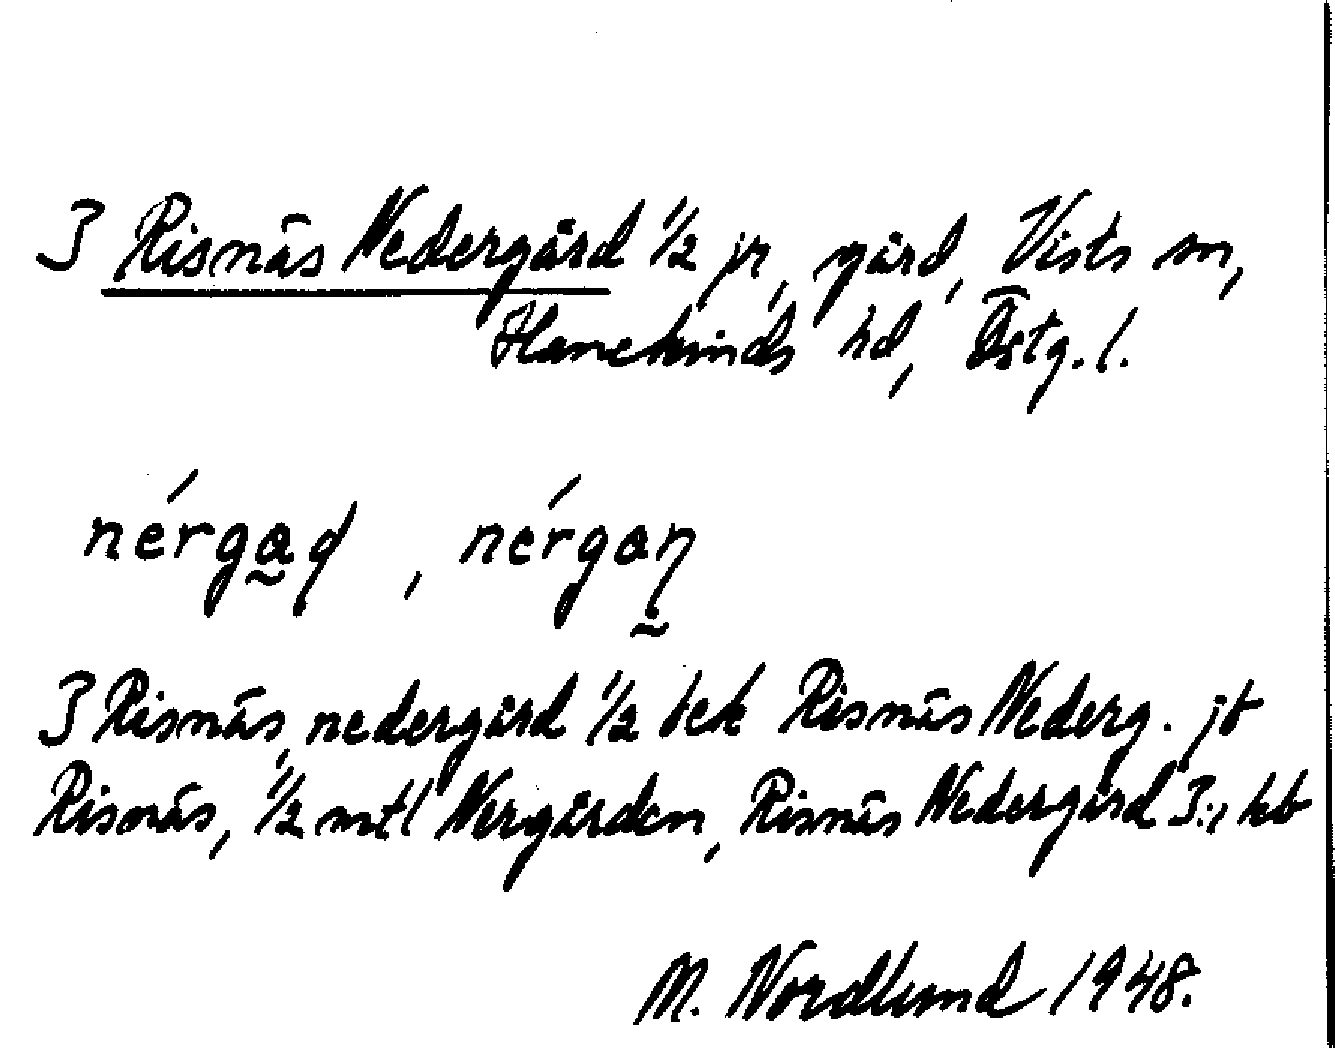 3 Risnäs Nedergård 1/2 jr, gård, Vists sn,
Hanekinds hd, Östg. l.
nérgad, nérgan
3 Risnäs, nedergård 1/2 bek Risnäs Nederg. jb
Risnäs, 1/2 mtl Nergården, Risnäs Nedergård 3:, kb
M. Nordlund 1948.